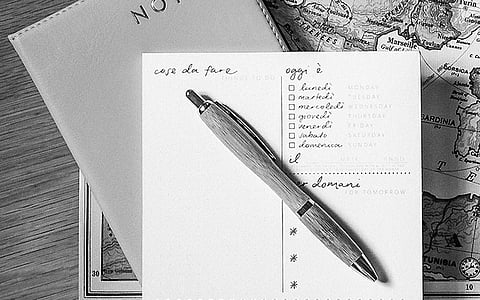 NO
cose da fare
THINGS TO DO
oggi è
lunedì MONDAY
martedì TUESDAY
mercoledì WEDNESDAY
giovedì THURSDAY
venerdì FRIDAY
sabato SATURDAY
domenica SUNDAY
il
domani
FOR TOMORROW
Marseille
Gulf of
SARDINIA
TUNISIA
30
10